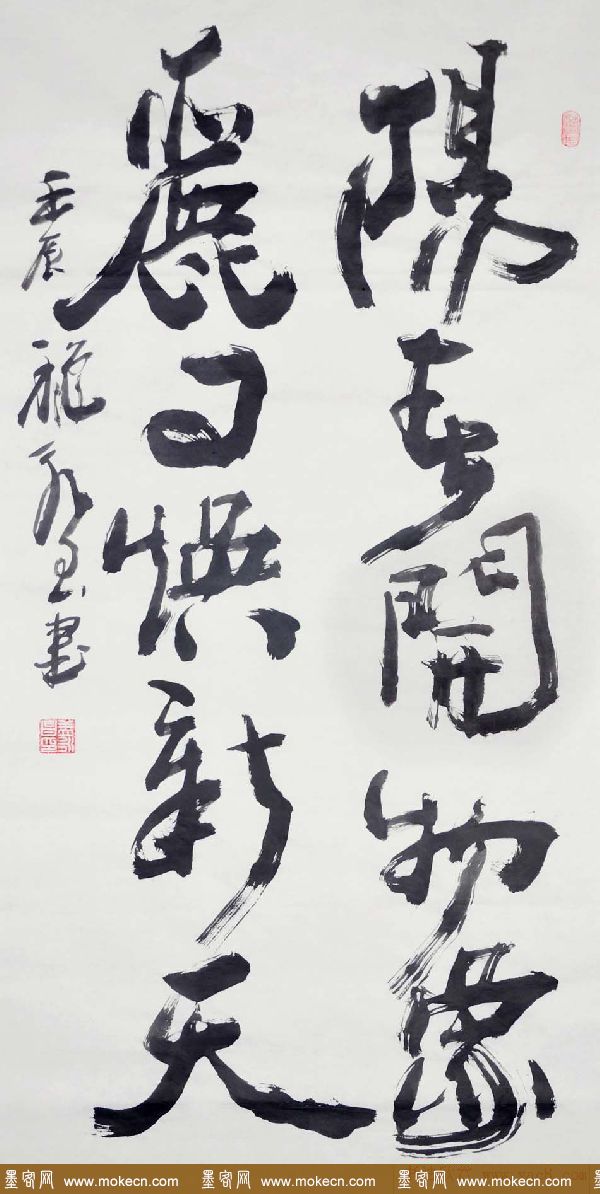 陽春開物象
麗日煥新天
壬辰 書
墨客网 www.mokecn.com 墨客网 www.mokecn.com 墨客网 www.mokecn.com 墨客网